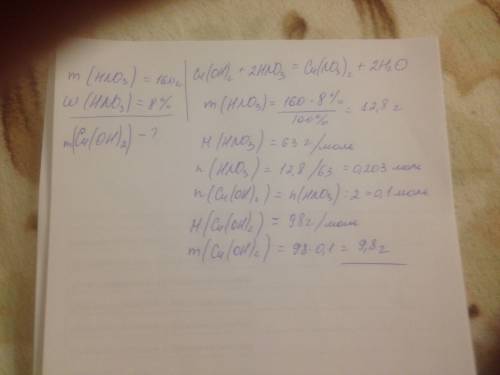 m(HNO3) = 160г
w(HNO3) = 8%
m(Cu(OH)2) - ?
Cu(OH)2 + 2HNO3 = Cu(NO3)2 + 2H2O
m(HNO3) = 160 · 8% / 100% = 12,8 г
M(HNO3) = 63 г/моль
n(HNO3) = 12,8 / 63 = 0,203 моль
n(Cu(OH)2) = n(HNO3) : 2 = 0,1 моль
M(Cu(OH)2) = 98 г/моль
m(Cu(OH)2) = 98 · 0,1 = 9,8 г